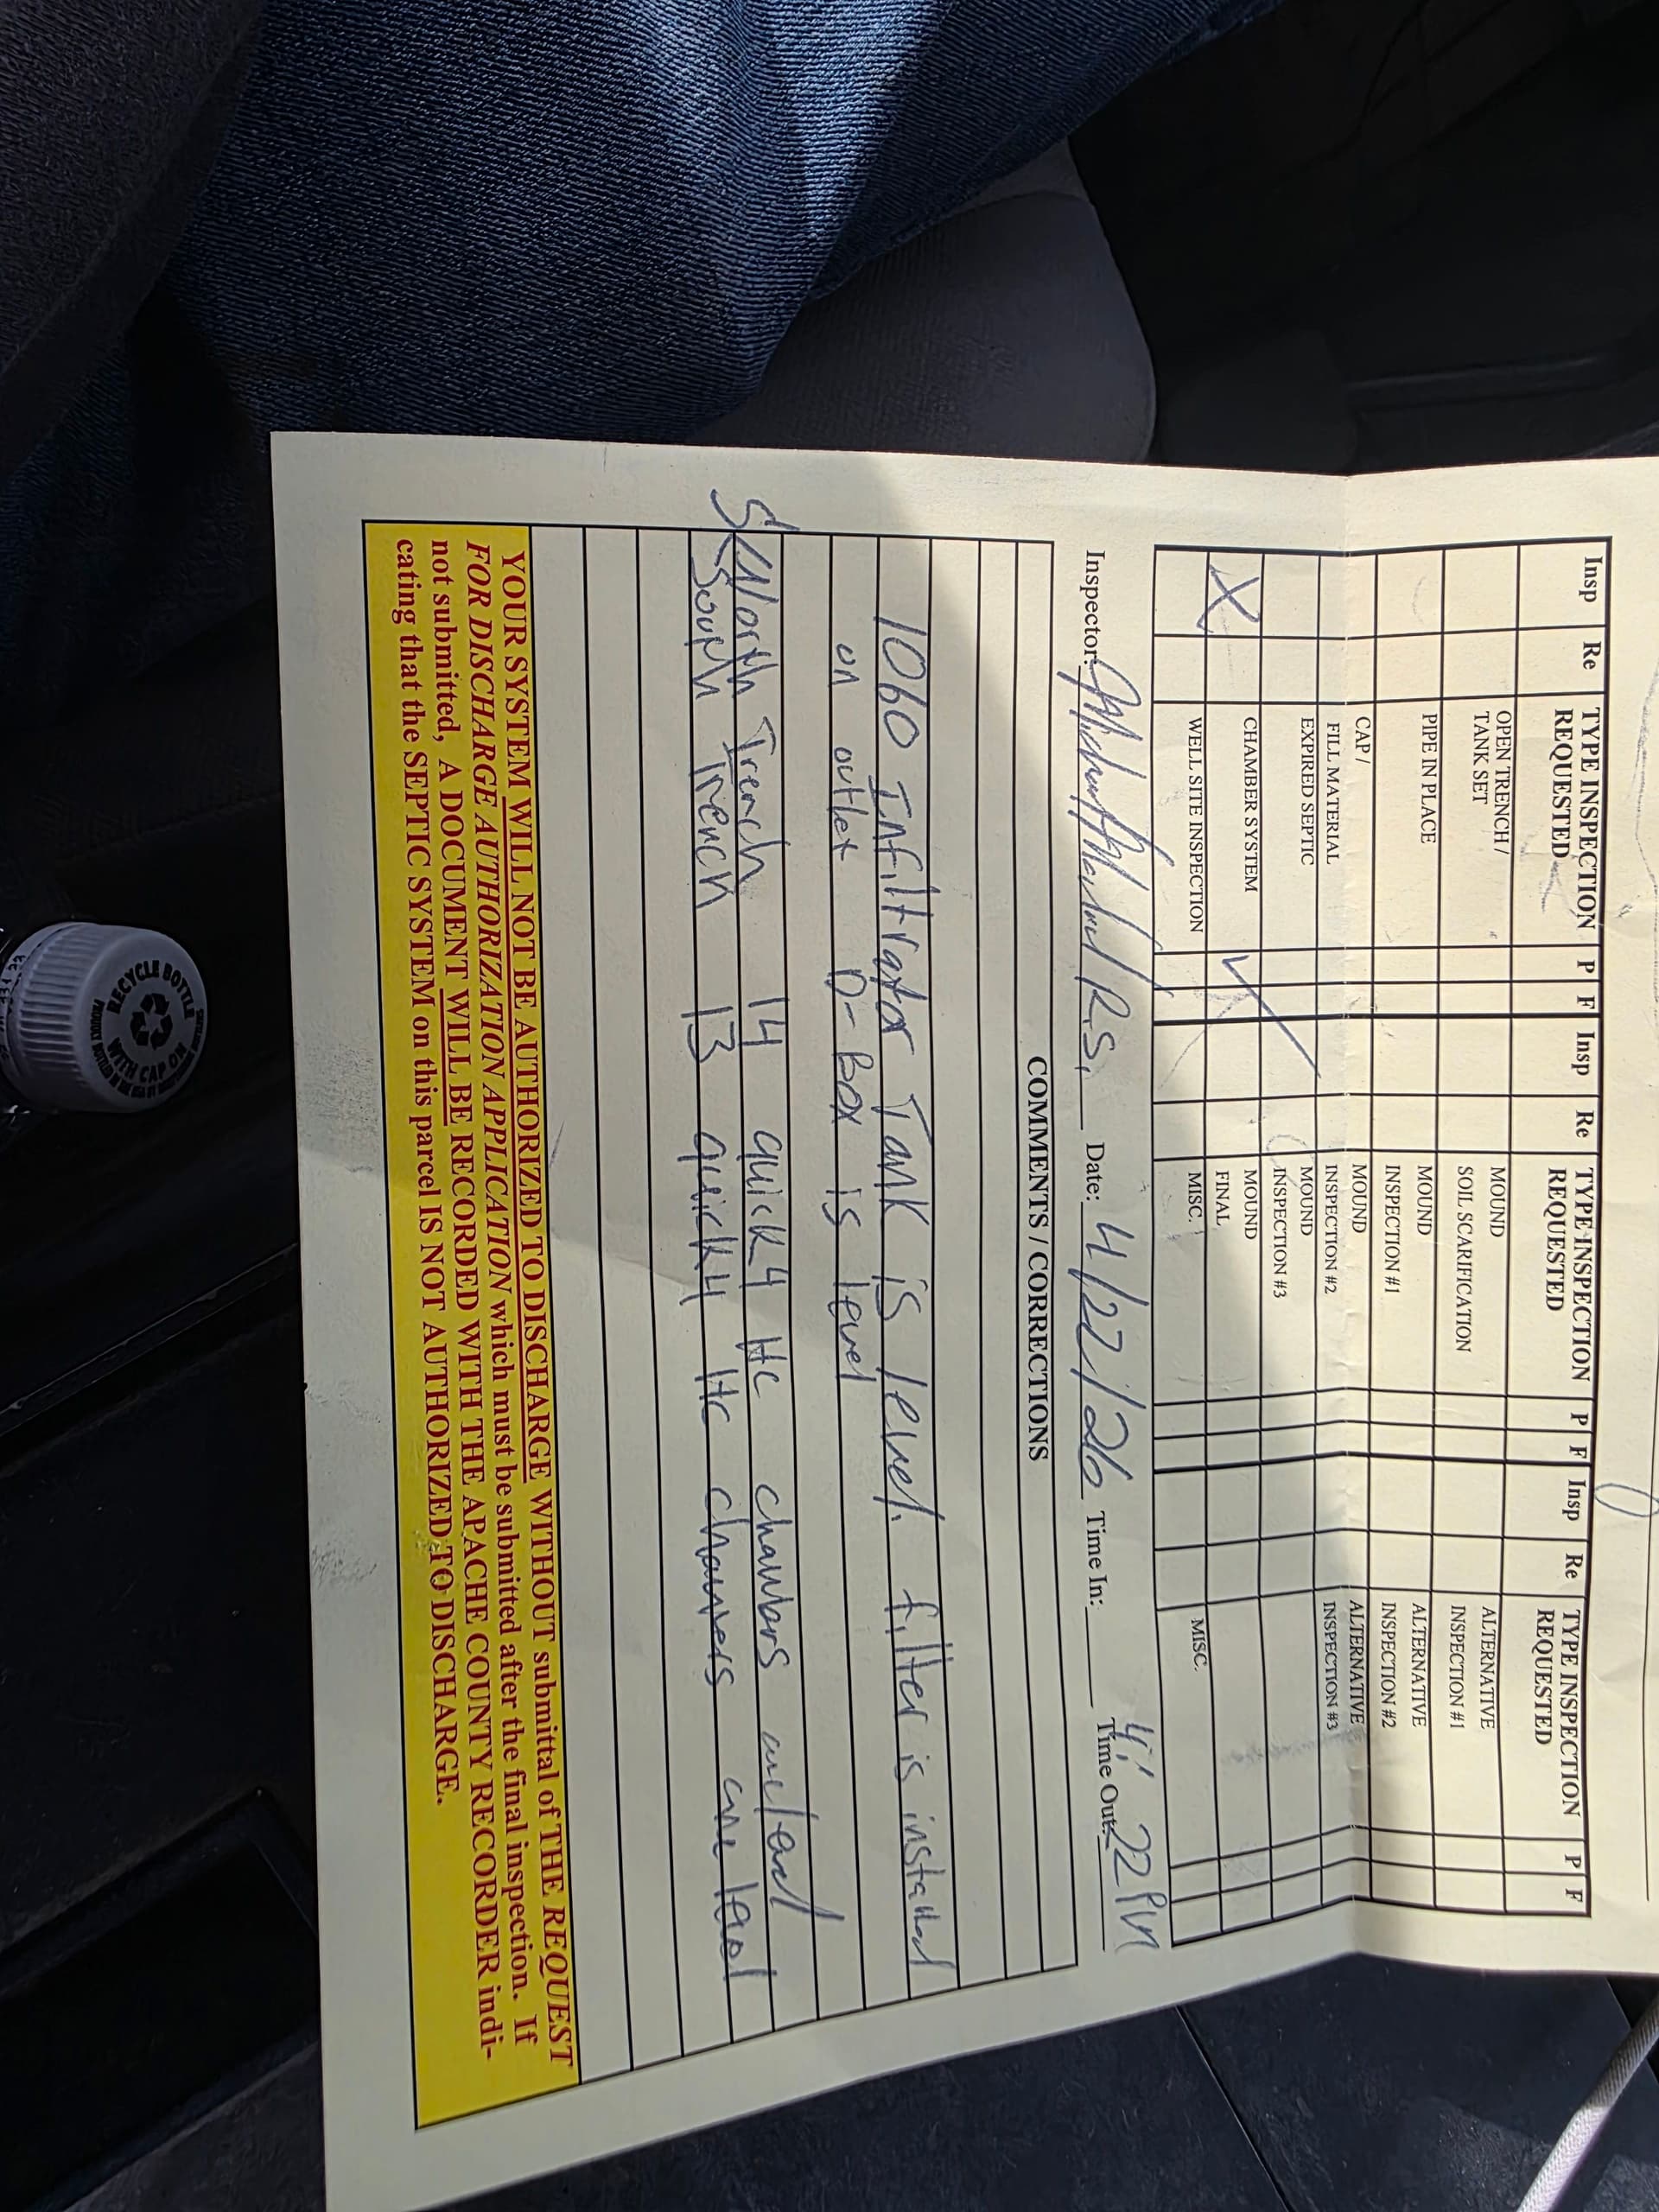 Insp Re TYPE INSPECTION REQUESTED P F Insp Re TYPE INSPECTION REQUESTED P F Insp Re TYPE INSPECTION REQUESTED P F
OPEN TRENCH / TANK SET MOUND SOIL SCARIFICATION ALTERNATIVE INSPECTION #1
PIPE IN PLACE MOUND INSPECTION #1 ALTERNATIVE INSPECTION #2
CAP / FILL MATERIAL MOUND INSPECTION #2 ALTERNATIVE INSPECTION #3
EXPIRED SEPTIC MOUND INSPECTION #3
X CHAMBER SYSTEM ✓ MOUND FINAL
WELL SITE INSPECTION MISC. MISC.
Inspector: R.S. Date: 4/22/26 Time In: Time Out: 4:22 PM
COMMENTS / CORRECTIONS
1060 Infiltrator Tank is level. filter is installed
on outlet D-Box is level
North Trench 14 quick4 Hc chambers are level
South Trench 13 quick4 Hc chambers are level
YOUR SYSTEM WILL NOT BE AUTHORIZED TO DISCHARGE WITHOUT submittal of THE REQUEST
FOR DISCHARGE AUTHORIZATION APPLICATION which must be submitted after the final inspection. If
not submitted, A DOCUMENT WILL BE RECORDED WITH THE APACHE COUNTY RECORDER indi-
cating that the SEPTIC SYSTEM on this parcel IS NOT AUTHORIZED TO DISCHARGE.
RECYCLE BOTTLE
WITH CAP ON